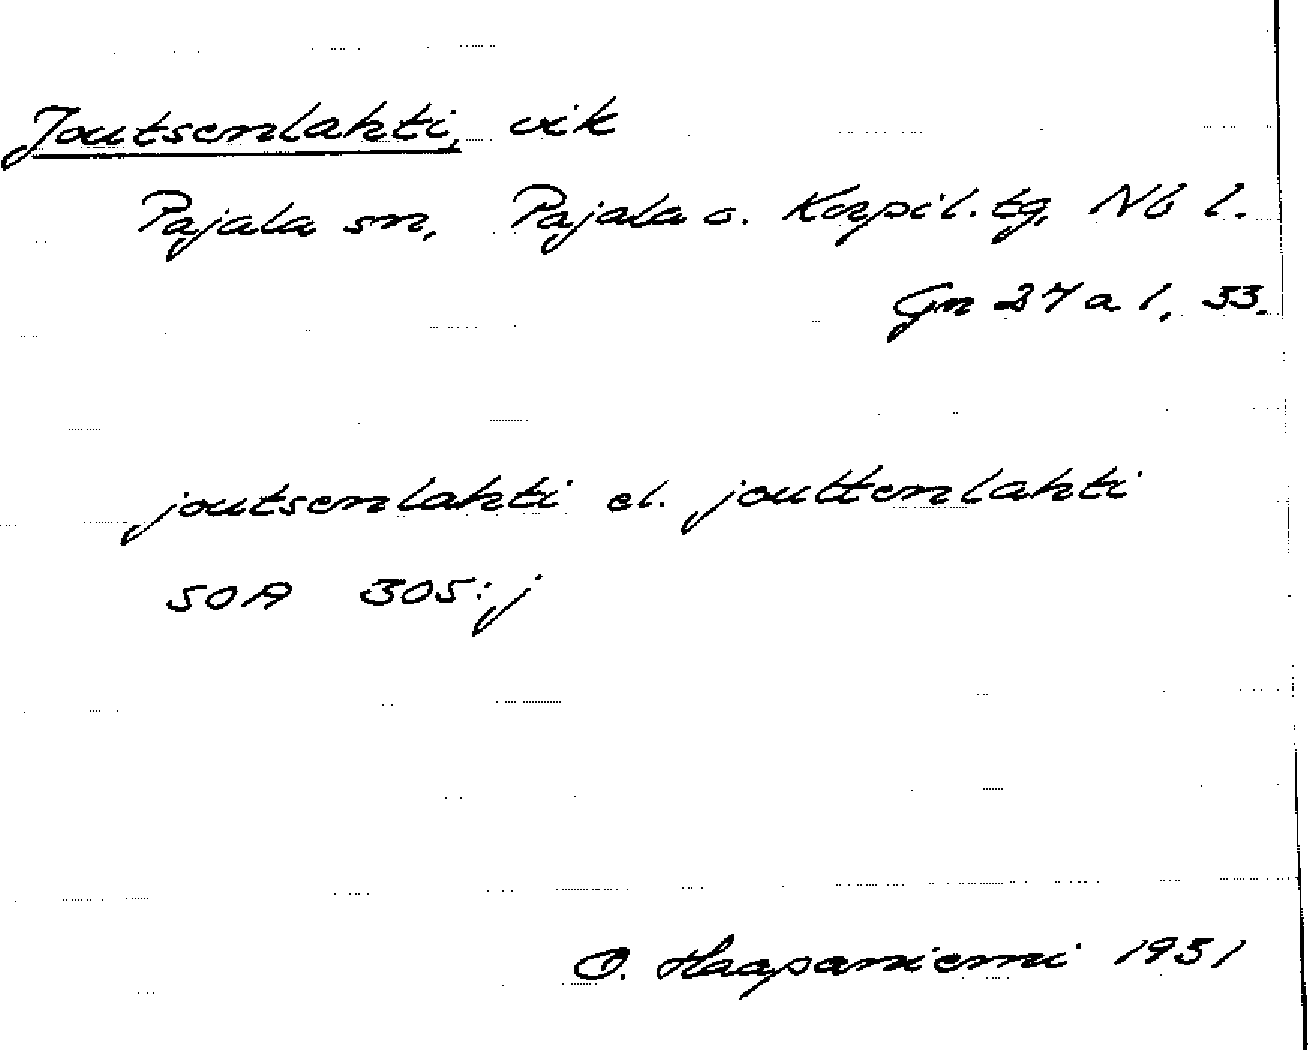 Joutsenlahti, vik
Pajala sn, Pajala o. Korpil. tg, Nb l.
Gn 27 a 1, 53.
joutsenlahti el. jouttenlahti
SOA 305:j
O. Haapaniemi 1951